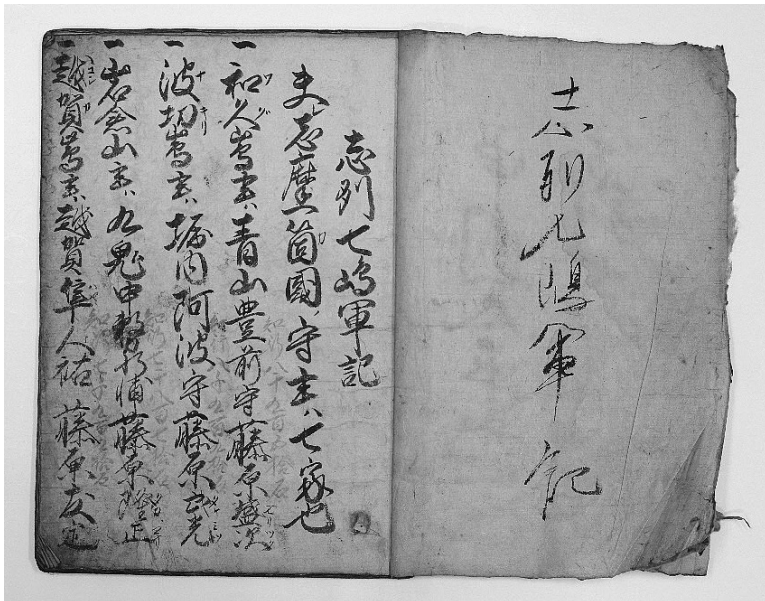 志列七嶋軍記
志列七嶋軍記
夫志摩一箇國ノ守主ハ七家也
一和久嶌主ハ青山豊前守藤原盛次
一波切嶌主ハ堀内阿波守藤原
一岩倉山主ハ九鬼中務 藤原隆正
一越賀嶌主ハ越賀隼人祐 藤原友